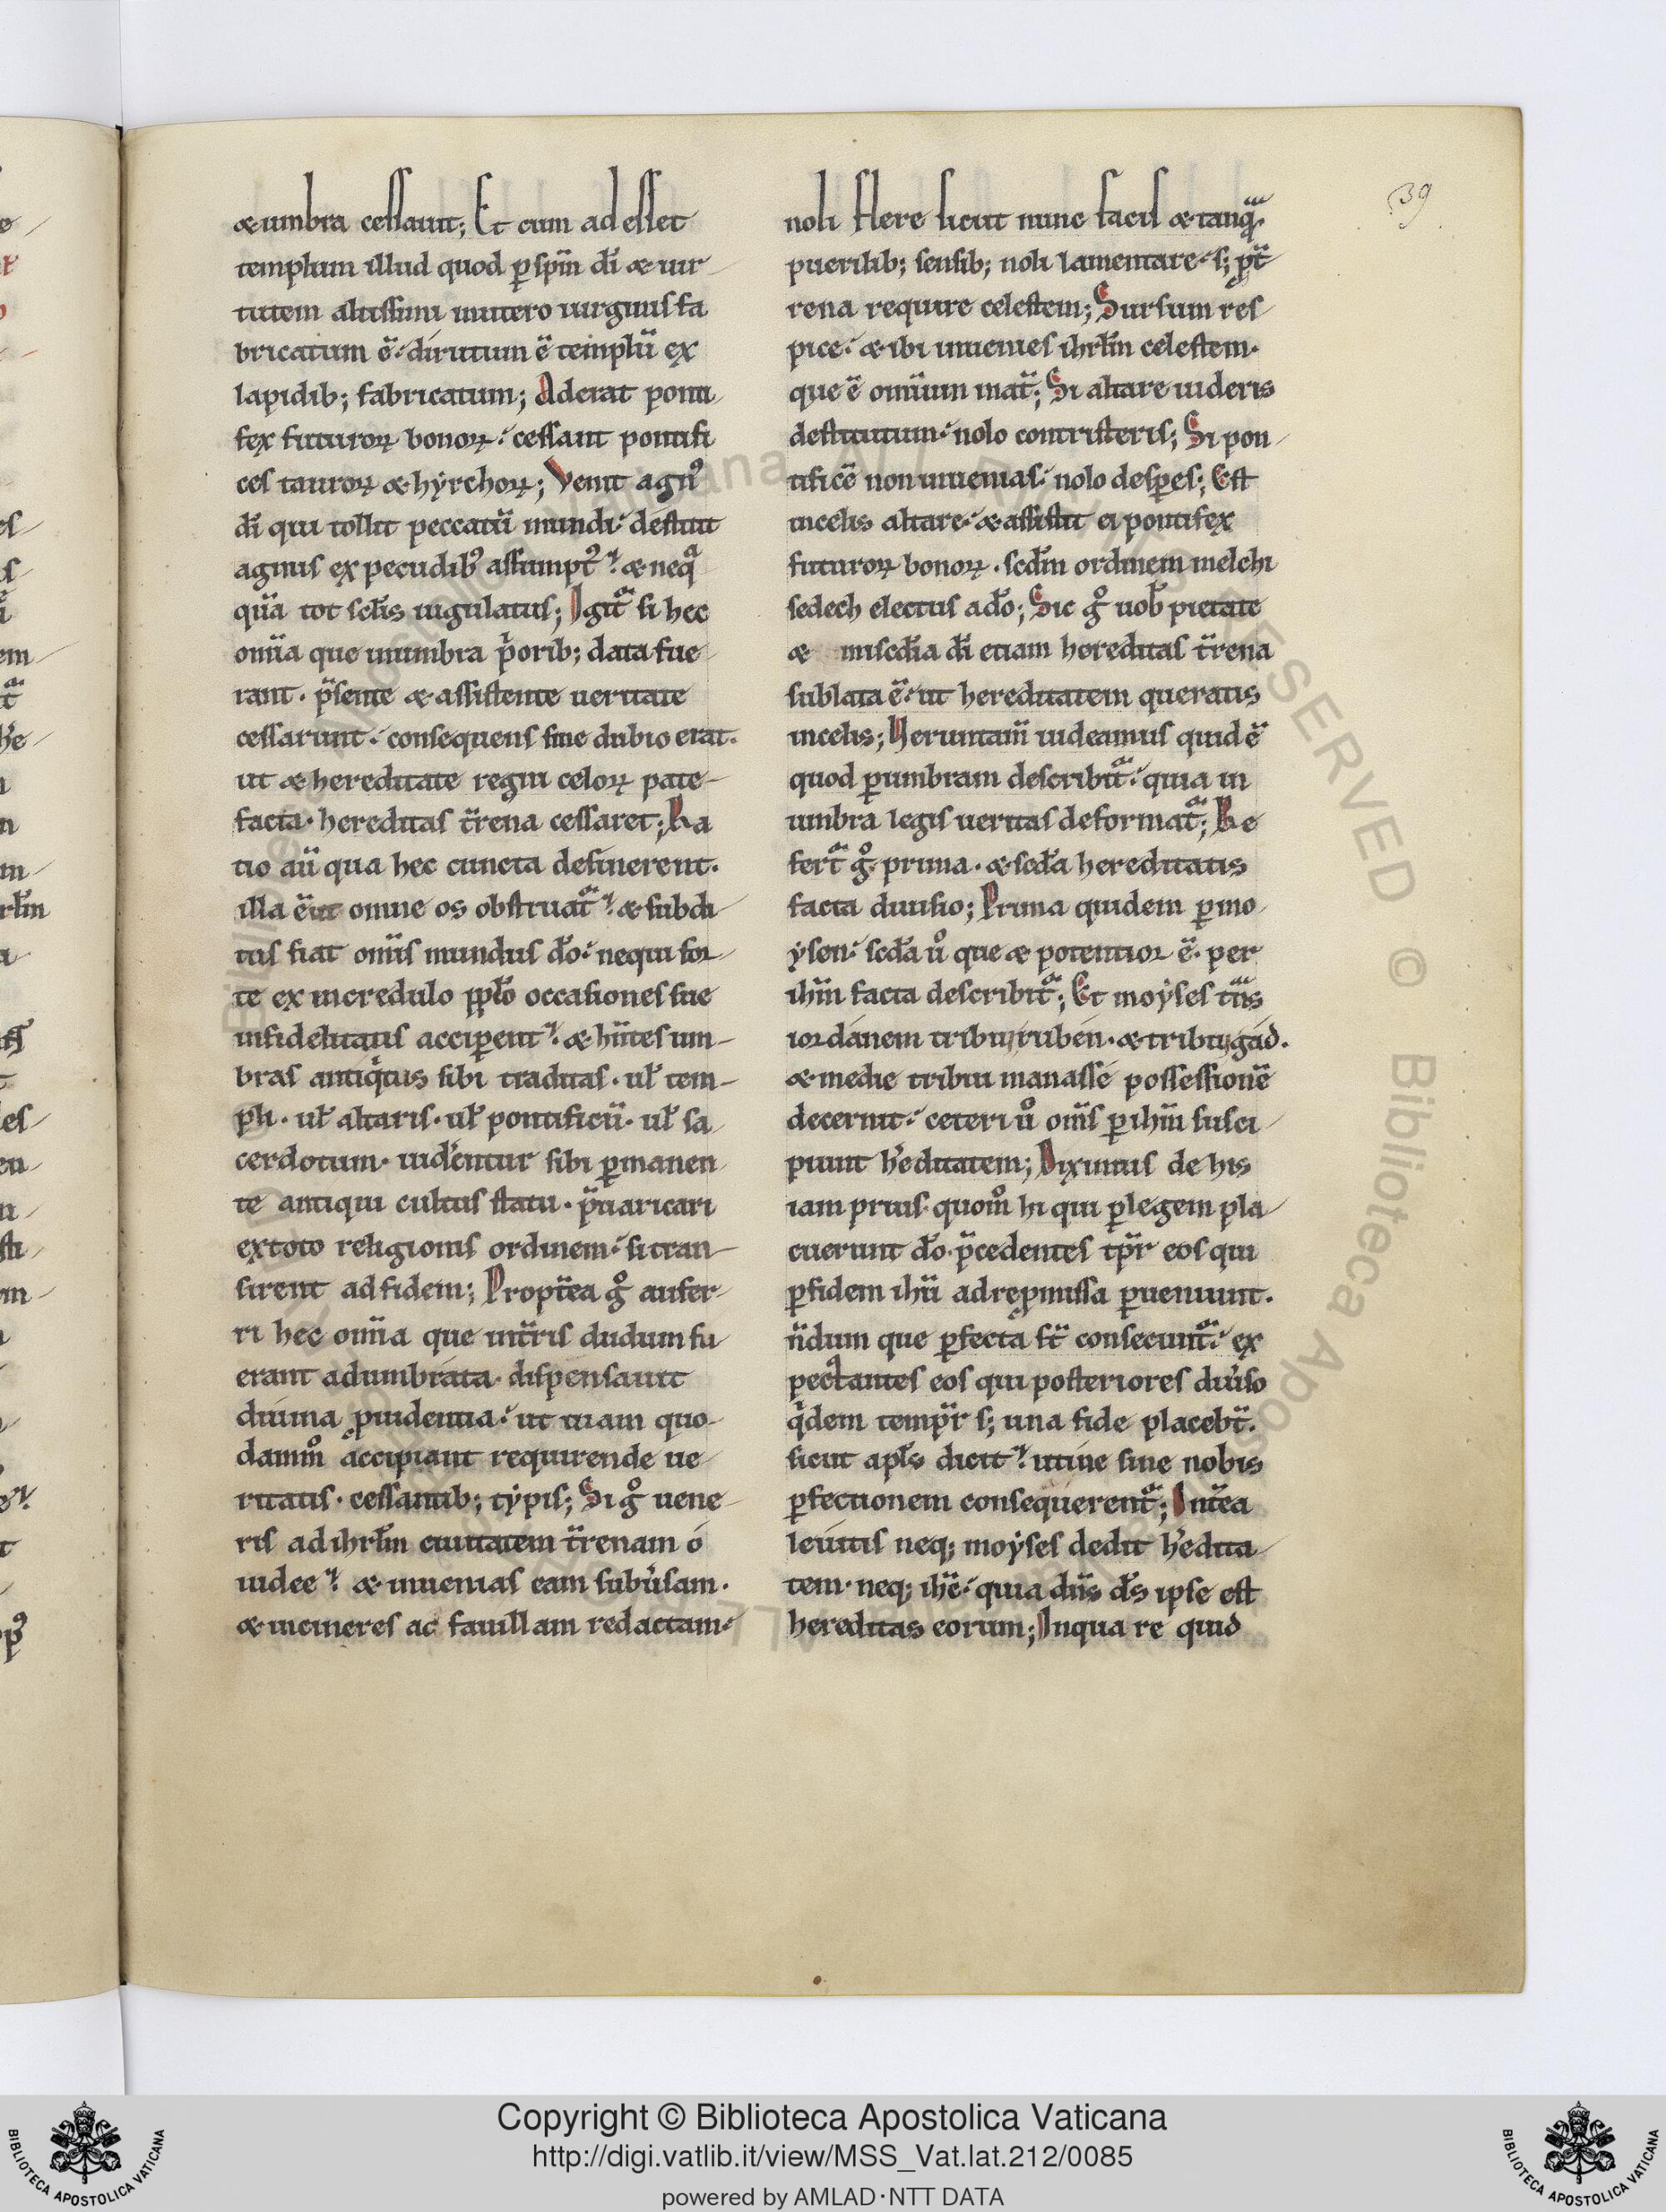 39
& umbra cessauit; Et cum adesset
templum illud quod ꝑ spm̄ dī & uir
tutem altissimi inutero uirginis fa
bricatum ē. dirutum ē templū ex
lapidib; fabricatum; Aderat ponti
fex futuroꝝ bonoꝝ. cessant pontifi
ces tauroꝝ & hyrchoꝝ; Venit agn᷒
dī qui tollit peccatū mundi. destitit
agnus ex pecudib᷒ assumpt᷒. & neq
quā tot sclis iugulatus; Igit si hec
omīa que inumbra p̍orib; data fue
rant. p̄sente & assistente ueritate
cessarunt. consequens sine dubio erat.
ut & hereditate regni celoꝝ pate
facta. hereditas t̄rena cessaret; Ra
tio aū qua hec cuncta desinerent.
illa ē ut omne os obstruat. & subdi
tus fiat om̄is mundus dō. nequi for
te ex incredulo pplō occasiones sue
infidelitatis acciꝑent. & hn̄tes um
bras antiq̍tus sibi traditas. ul̄ tem
pli. ul̄ altaris. ul̄ pontificū. ul̄ sa
cerdotum. uid̍entur sibi ꝑmanen
te antiqui cultus statu. p̄uaricari
extoto religionis ordinem. si tran
sirent ad fidem; Propt̄ea g̊ aufer
ri hec omīa que int̄ris dudum fu
erant adumbrata. dispensauit
diuina ꝓuidentia. ut uiam quo
dammͦ accipiant requirende ue
ritatis. cessantib; typis; Si g̊ uene
ris ad ihrl̄m ciuitatem t̄renam ó
iudee. & inuenias eam subu̍sam.
& incineres ac fauillam redactam.
noli flere sicut nunc facis & tanq̄
puerilib; sensib; noli lamentare. s; ꝓ t̄
rena require celestem; Sursum res
pice. & ibi inuenies ihrl̄m celestem.
que ē omīum mat̄; Si altare uideris
destitutum. nolo contristeris; Si pon
tificē non inuenias. nolo desꝑes; Est
incelis altare. & assistit ei pontifex
futuroꝝ bonoꝝ. scdm̄ ordinem melchi
sedech electus adō; Sic g̊ uob̄ pietate
& miscdīa dī etiam hereditas t̄rena
sublata ē. ut hereditatem queratis
incelis; Veruntam̄ uideamus quid ē
quod ꝑumbram describit̄. quia in
umbra legis ueritas deformat̄; Re
fert̄ g̊ prima. & scdā hereditatis
facta diuisio; Prima quidem ꝑmo
ysen. scdā ů que & potentior ē. per
ihm̄ facta describit̄; Et moyses tn̄s
iordanem tribui ruben. & tribui gad.
& medie tribui manasse possessionē
decernit. ceteri ů om̄s ꝑ ihm̄ susci
piunt h̍editatem; Diximus de his
iam prius. quom̊ hi qui ꝑlegem pla
cuerunt dō. p̄cedentes tp̄r eos qui
ꝑfidem ihū ad repmissa ꝑuenīunt.
n̄dum que ꝑfecta st̄ consecunt̄. ex
pectantes eos qui posteriores diu̍so
q̍dem temp̄r s; una fide placebt̄.
sicut apl̄s dicit. utine sine nobis
ꝑfectionem consequerent̄; Int̄ea
leuitis neq; moyses dedit h̍edita
tem. neq; ihē. quia dn̄s ds̄ ipse est
hereditas eorum; Inqua re quid
Copyright © Biblioteca Apostolica Vaticana
http://digi.vatlib.it/view/MSS_Vat.lat.212/0085
powered by AMLAD·NTT DATA
BIBLIOTECA APOSTOLICA VATICANA
BIBLIOTECA APOSTOLICA VATICANA